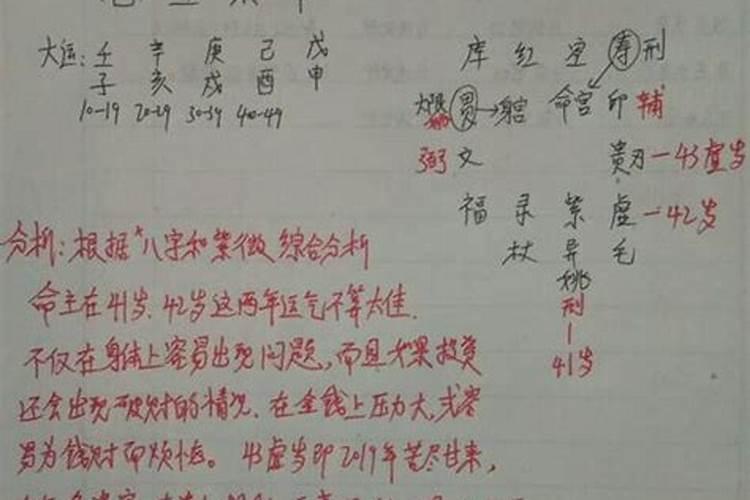 大运: 壬 辛 庚 己 戊
子 亥 戌 酉 申
10-19 20-29 30-39 40-49
库 红 空 寿 刑
大限 昌→ 身宫 命宫 印 辅
弼 文 贵刃-43虚岁
福 录 紫 虚-42岁
杖 异 毛
姚
刑
41岁
分析: 根据"八字和紫微综合分析
命主在41岁、42岁这两年运气不算太佳.
不仅在身体上容易出现问题,而且如果投资
还会出现破财的情况、在金钱上压力大,或容
易为钱财而烦恼。 43虚岁即2019年苦尽甘来,